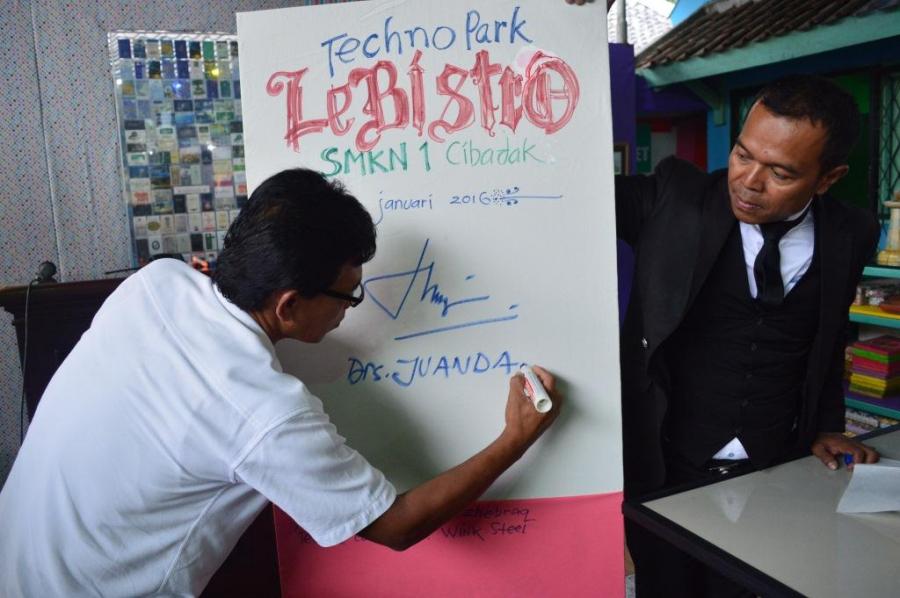 Techno Park
LeBistrO
SMKN 1 Cibadak
januari 2016
Drs. JUANDA.
Wink Steel